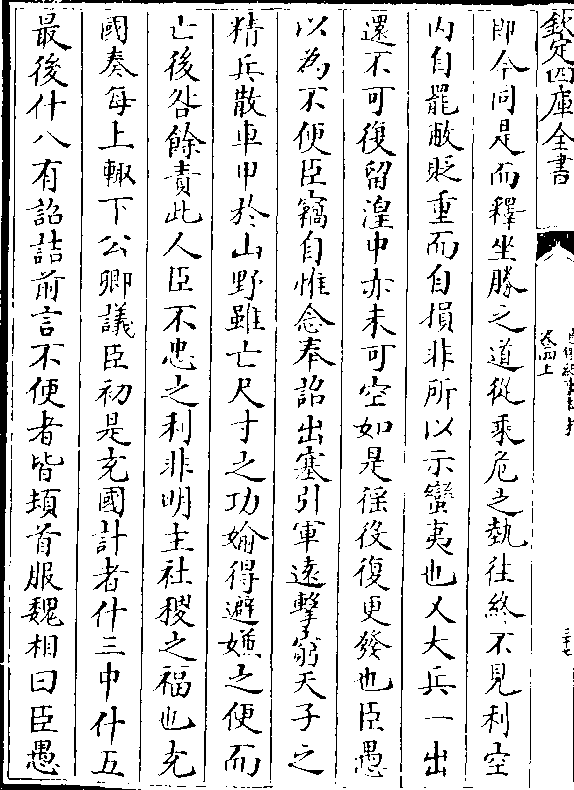 欽定四庫全書
卷四上
即今同是而釋坐勝之道從乗危之埶往終不見利空
内自罷敝貶重而自損非所以示蠻夷也又大兵一出
還不可復留湟中亦未可空如是徭役復更發也臣愚
以為不便臣竊自惟念奉詔出塞引軍逺擊窮天子之
精兵散車甲於山野雖亡尺寸之功婾得避嫌之便而
亡後咎餘責此人臣不忠之利非明主社稷之福也充
國奏每上輙下公卿議臣初是充國計者什三中什五
最後什八有詔詰前言不便者皆頓首服魏相曰臣愚